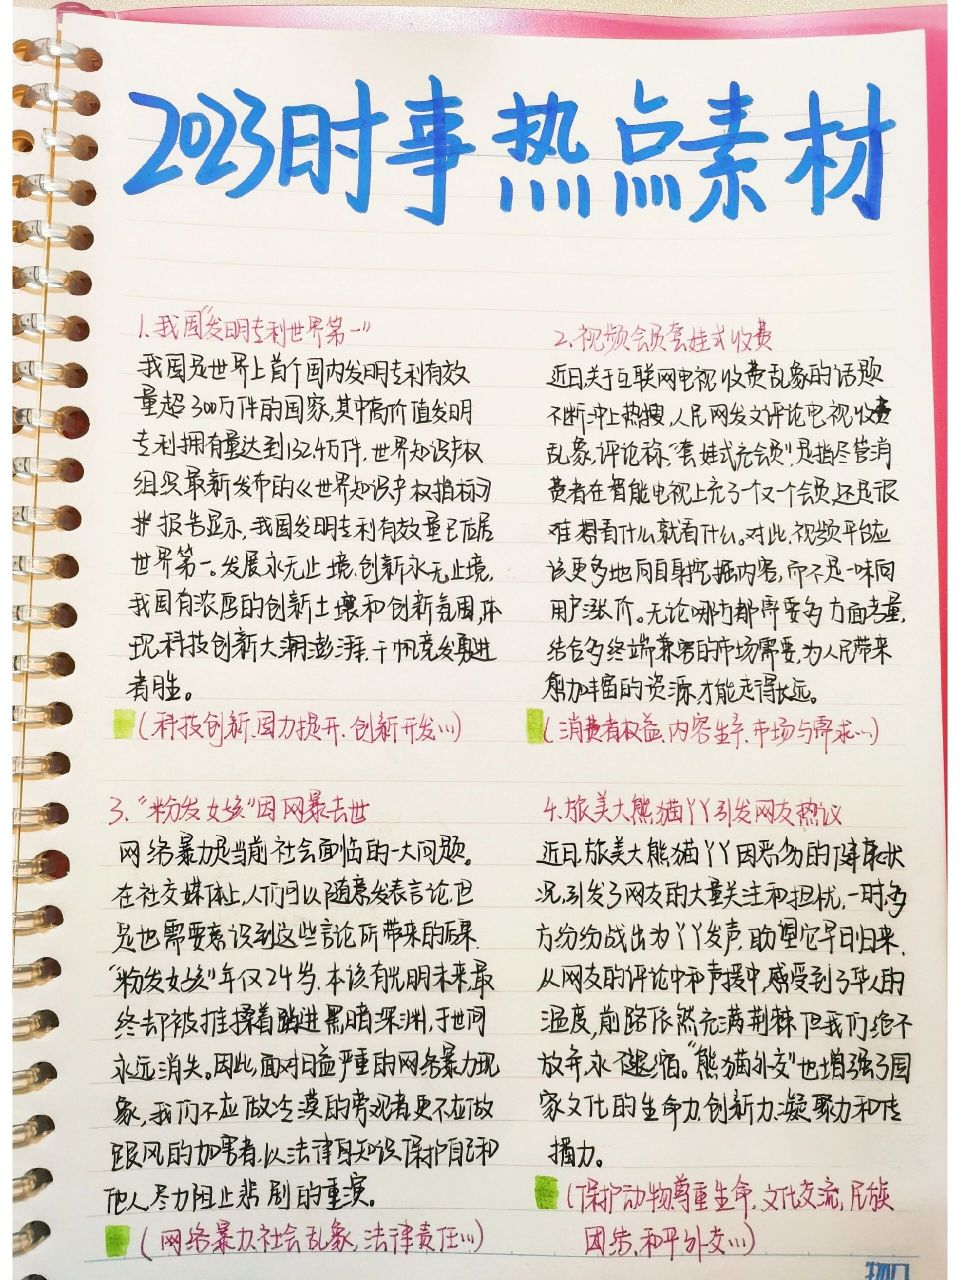 2023时事热点素材
1.我国“发明专利世界第一”
我国是世界上首个国内发明专利有效
量超300万件的国家,其中高价值发明
专利拥有量达到132.4万件,世界知识产权
组织最新发布的《世界知识产权指标》
报告显示,我国发明专利有效量已位居
世界第一。发展永无止境,创新永无止境,
我国有浓厚的创新土壤和创新氛围,体
现科技创新大潮澎湃,千帆竞发勇进
者胜。
(科技创新、国力提升、创新开发...)
2.视频会员套娃式收费
近日,关于互联网电视收费乱象的话题
不断冲上热搜,人民网发文评论电视收费
乱象,评论称,“套娃式充会员”,是指尽管消
费者在智能电视上充了一个又一个会员,还是很
难想看什么就看什么。对此,视频平台应
该更多地向自身挖掘内容,而不是一味向
用户涨价。无论哪方都需要多方面考量,
结合多终端兼容的市场需要,为人民带来
愈加丰富的资源,才能走得长远。
(消费者权益、内容生产、市场与需求...)
3.“粉发女孩”因网暴去世
网络暴力是当前社会面临的一大问题。
在社交媒体上,人们可以随意发表言论,但
是也需要意识到这些言论所带来的后果.
“粉发女孩”年仅24岁,本该有光明未来,最
终却被推搡着踏进黑暗深渊,于世间
永远消失。因此,面对日益严重的网络暴力现
象,我们不应做冷漠的旁观者,更不应做
跟风的加害者,以法律与知识保护自己和
他人,尽力阻止悲剧的重演。
(网络暴力,社会乱象,法律责任...)
4.旅美大熊猫丫丫引发网友热议
近日,旅美大熊猫丫丫因恶劣的健康状
况,引发了网友的大量关注和担忧,一时,多
方纷纷战出为丫丫发声,盼望它早日归来.
从网友的评论中和声援中,感受到了华人的
温度,前路依然充满荆棘,但我们绝不
放弃,永不退缩。“熊猫外交”也增强了国
家文化的生命力,创新力,凝聚力和传
播力。
(保护动物,尊重生命,文化交流,民族
团结,和平外交...)